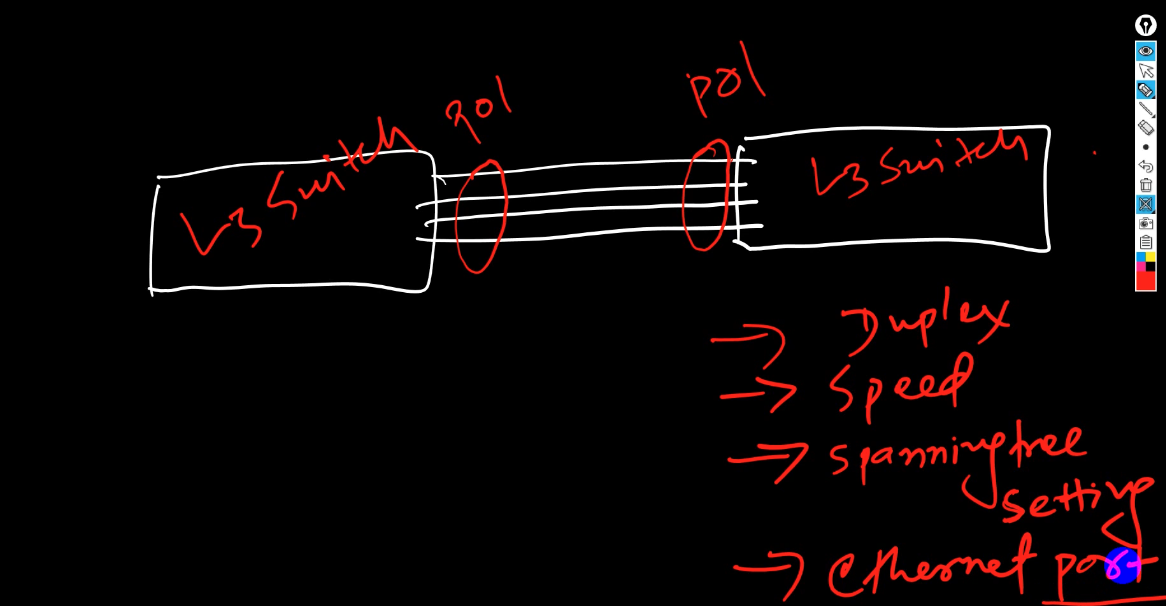 po1
po1
L3 Switch
L3 Switch
Duplex
Speed
spanning tree
setting
Ethernet port